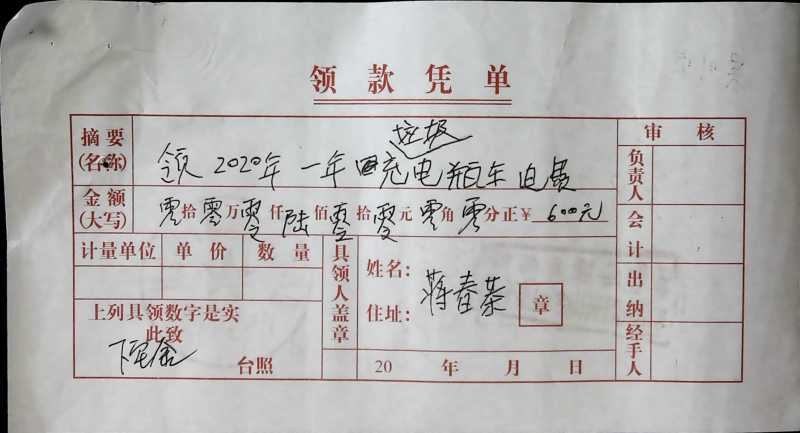 领款凭单
摘要 垃圾 审核
(名称) 领2020年一年充电瓶车电费 负责人
金额
(大写) 零拾零万零仟陆佰零拾零元零角零分正¥ 600元 会计
计量单位 单价 数量 具领人盖章 姓名: 蒋春茶 出纳
住址: 章
上列具领数字是实
此致 经手人
台照 20 年 月 日